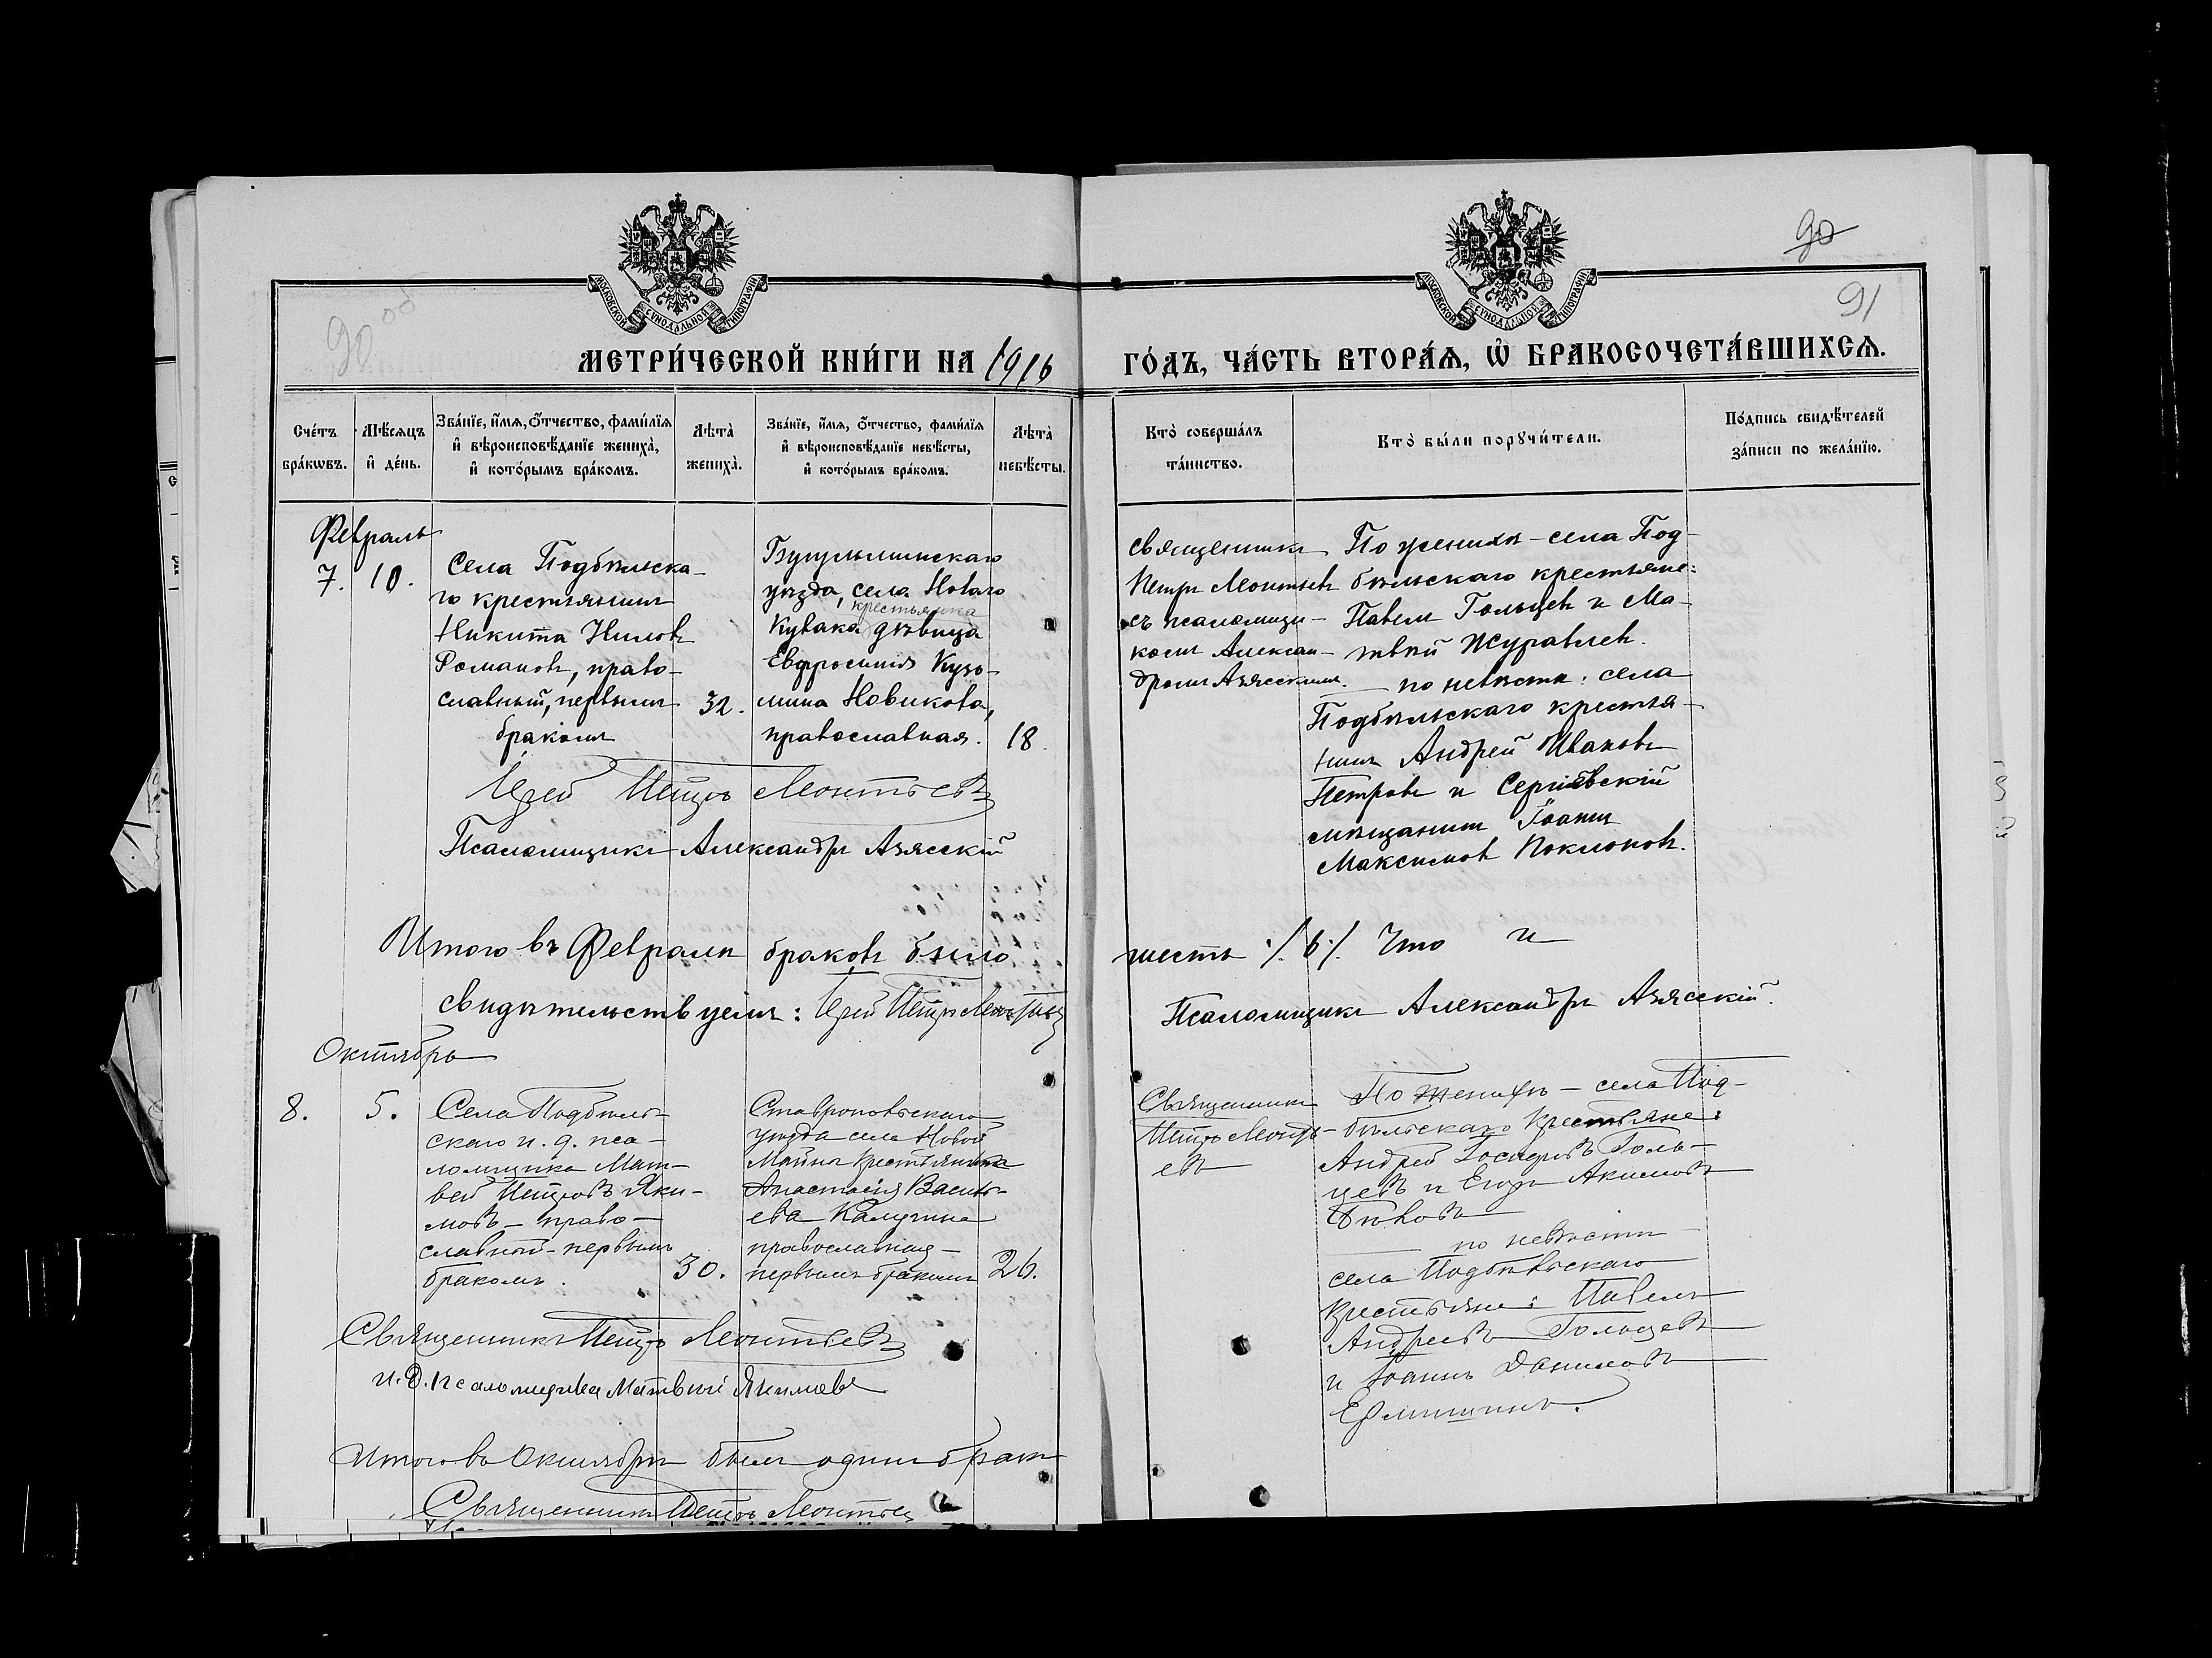 90
90
91
МОСКОВСКОЙ СѴНОДАЛЬНОЙ ТИПОГРАФІИ
МОСКОВСКОЙ СѴНОДАЛЬНОЙ ТИПОГРАФІИ
МЕТРИ́ЧЕСКОЙ КНИ́ГИ НА 1916 ГО́ДЪ, ЧА́СТЬ ВТОРА́Я, Ѡ БРАКОСОЧЕТА́ВШИХСЯ.
Сче́тъ бра́кѡвъ.
Мѣ́сяцъ и҆ де́нь.
Зва́нїе, и҆́мя, ѻ҆́тчество, фами́лїя и҆ вѣроисповѣ́данїе жениха̀, и҆ кото́рымъ бра́комъ.
Лѣта̀ жениха̀.
Зва́нїе, и҆́мя, ѻ҆́тчество, фами́лїя и҆ вѣроисповѣ́данїе невѣ́сты, и҆ кото́рымъ бра́комъ.
Лѣта̀ невѣ́сты.
Кто̀ соверша́лъ та́инство.
Кто̀ бы́ли порꙋчи́тели.
По́дпись свидѣ́телей за́писи по жела́нїю.
Февраль
7.
10.
Села Подбѣльска-
го крестьянинъ
Никита Ниловъ
Романовъ, право-
славный, первымъ
бракомъ
32.
Бугульминскаго
уѣзда, села Новаго
крестьянка
Кувака дѣвица
Евфросинія Кузь-
мина Новикова,
православная.
18.
Священникъ
Петръ Леонтьевъ
съ псаломщи-
комъ Алексан-
дромъ Азясскимъ.
По женихѣ - села Под-
бѣльскаго крестьяне:
Павелъ Гольцевъ и Ма-
твѣй Журавлевъ.
по невѣстѣ: села
Подбѣльскаго крестья-
нинъ Андрей Ивановъ
Петровъ и Сергіевскій
мѣщанинъ Іоаннъ
Максимовъ Поклоновъ.
Іерей Петръ Леонтьевъ
Псаломщикъ Александръ Азясскій
Итого въ Февралѣ браковъ было шесть /.6./. Что и
свидѣтельствуемъ: Іерей Петръ Леонтьевъ
Псаломщикъ Александръ Азясскій.
Октябрь
8.
5.
Села Подбѣль-
скаго и. д. пса-
ломщика Мат-
вей Петровъ Яки-
мовъ - право-
славный - первымъ
бракомъ.
30.
Ставропольскаго
уѣзда села Новой
Майны крестьянка
Анастасія Василь-
ева Калугина
православная -
первымъ бракомъ
26.
Священникъ
Петръ Леонть-
евъ
По женихѣ - села Под-
бѣльскаго крестьяне:
Андрей Іосифовъ Голь-
цевъ и Егоръ Акимовъ
по невѣстѣ
села Подбѣльскаго
крестьяне: Павелъ
Андреевъ Гольцевъ
и Іоаннъ Даниловъ
Священникъ Петръ Леонтьевъ
и.д. псаломщика Матвѣй Якимовъ
Итого въ Октябрѣ былъ одинъ бракъ
Священникъ Петръ Леонтьев